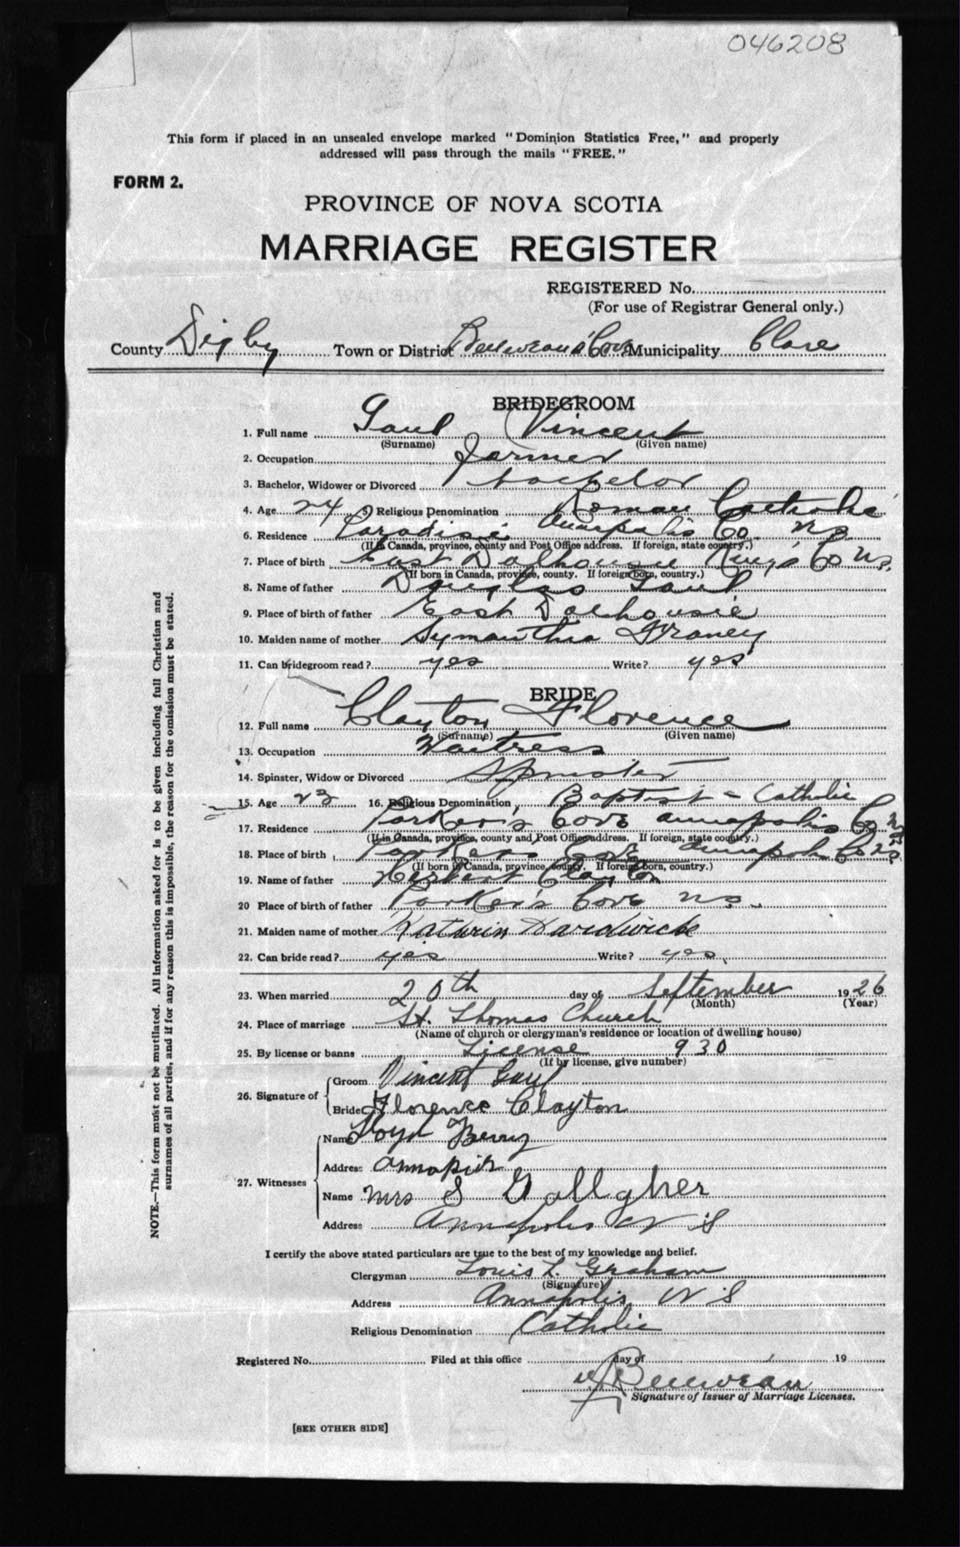 046208
This form if placed in an unsealed envelope marked "Dominion Statistics Free," and properly
addressed will pass through the mails "FREE."
FORM 2.
PROVINCE OF NOVA SCOTIA
MARRIAGE REGISTER
REGISTERED No.
(For use of Registrar General only.)
County Digby Town or District Belliveau's Cove Municipality Clare
BRIDEGROOM
1. Full name Gaul Vincent
(Surname) (Given name)
2. Occupation farmer
3. Bachelor, Widower or Divorced bachelor
4. Age 24 5. Religious Denomination Roman Catholic
6. Residence Paradise Annapolis Co. NS
(If in Canada, province, county and Post Office address. If foreign, state country.)
7. Place of birth East Dalhousie King's Co NS.
(If born in Canada, province, county. If foreign born, country.)
8. Name of father Douglas Gaul
9. Place of birth of father East Dalhousie
10. Maiden name of mother Symanthia Franey
11. Can bridegroom read? yes Write? yes
BRIDE
12. Full name Clayton Florence
(Surname) (Given name)
13. Occupation Waitress
14. Spinster, Widow or Divorced Spinster
15. Age 23 16. Religious Denomination Baptist - Catholic
17. Residence Parker's Cove Annapolis Co NS
(If in Canada, province, county and Post Office address. If foreign, state country.)
18. Place of birth Parkers Cove Annapolis Co NS.
(If born in Canada, province, county. If foreign born, country.)
19. Name of father Herbert Clayton
20 Place of birth of father Parker's Cove NS.
21. Maiden name of mother Katurin Hardwick
22. Can bride read? yes Write? yes.
23. When married 20th day of September 1926
(Month) (Year)
24. Place of marriage St. Thomas Church
(Name of church or clergyman's residence or location of dwelling house)
25. By license or banns License 930
(If by license, give number)
26. Signature of Groom Vincent Gaul
Bride Florence Clayton
27. Witnesses Name Lloyd Berry
Address Annapolis
Name Mrs S Gallgher
Address Annapolis N S
I certify the above stated particulars are true to the best of my knowledge and belief.
Clergyman Louis L. Graham
(Signature)
Address Annapolis N S
Religious Denomination Catholic
Registered No. Filed at this office day of 19
Belliveau
Signature of Issuer of Marriage Licenses.
[SEE OTHER SIDE]
NOTE.—This form must not be mutilated. All information asked for is to be given including full Christian and
surnames of all parties, and if for any reason this is impossible, the reason for the omission must be stated.